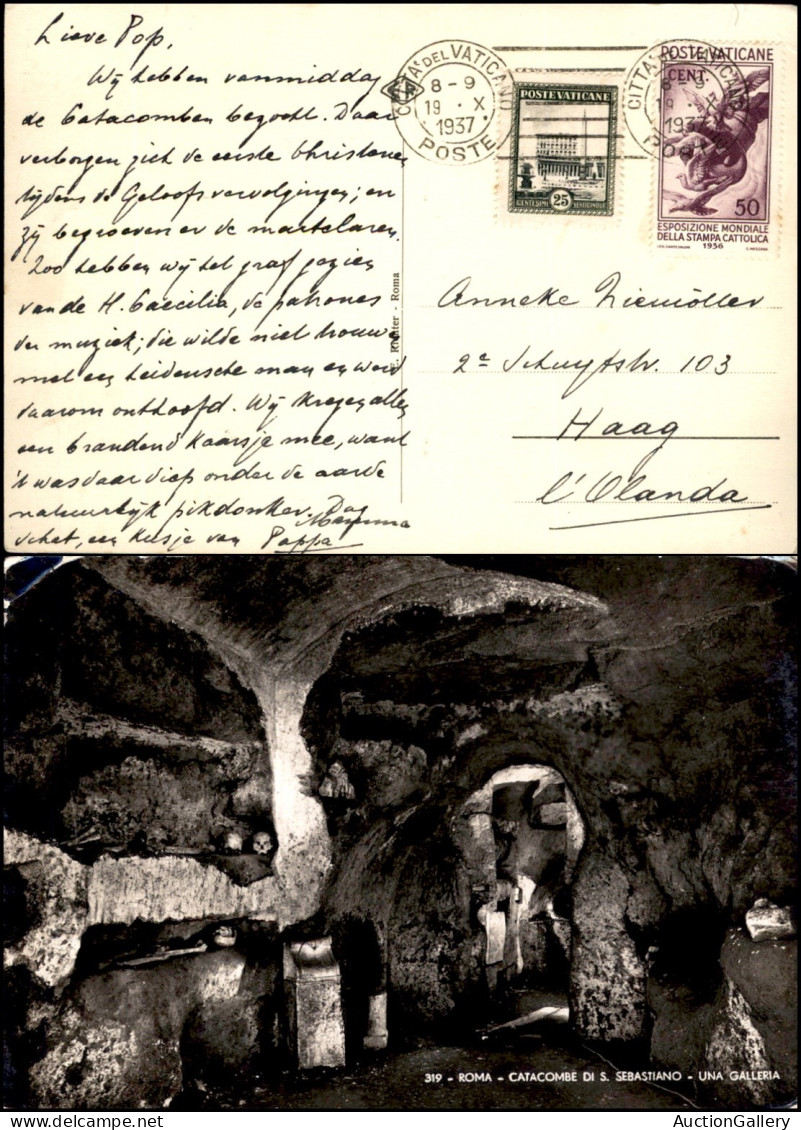 Lieve Pop,
Wij hebben vanmiddag
de Catacomben bezocht. Daar
verborgen zich de eerste Christenen
tijdens de Geloofsvervolgingen; en
zij begroeven er de martelaren.
Zoo hebben wij het graf gezien
van de H. Caecilia, de patrones
der muziek; die wilde niet trouwen
met een heidensche man en werd
daarom onthoofd. Wij kregen allen
een brandend kaarsje mee, want
't was daar diep onder de aarde
natuurlijk pikdonker. Dag
schat, een kusje van Mamma
Pappa
Richter - Roma
CITTÀ DEL VATICANO
8-9
19 · X
1937
POSTE
POSTE VATICANE
25
CENTESIMI
CITTÀ DEL VATICANO
8-9
19 · X
1937
POSTE
POSTE VATICANE
CENT.
50
ESPOSIZIONE MONDIALE
DELLA STAMPA CATTOLICA
1936
Anneke Niemöller
2e Schuytstr. 103
Haag
l'Olanda
319 - ROMA - CATACOMBE DI S. SEBASTIANO - UNA GALLERIA
AuctionGallery